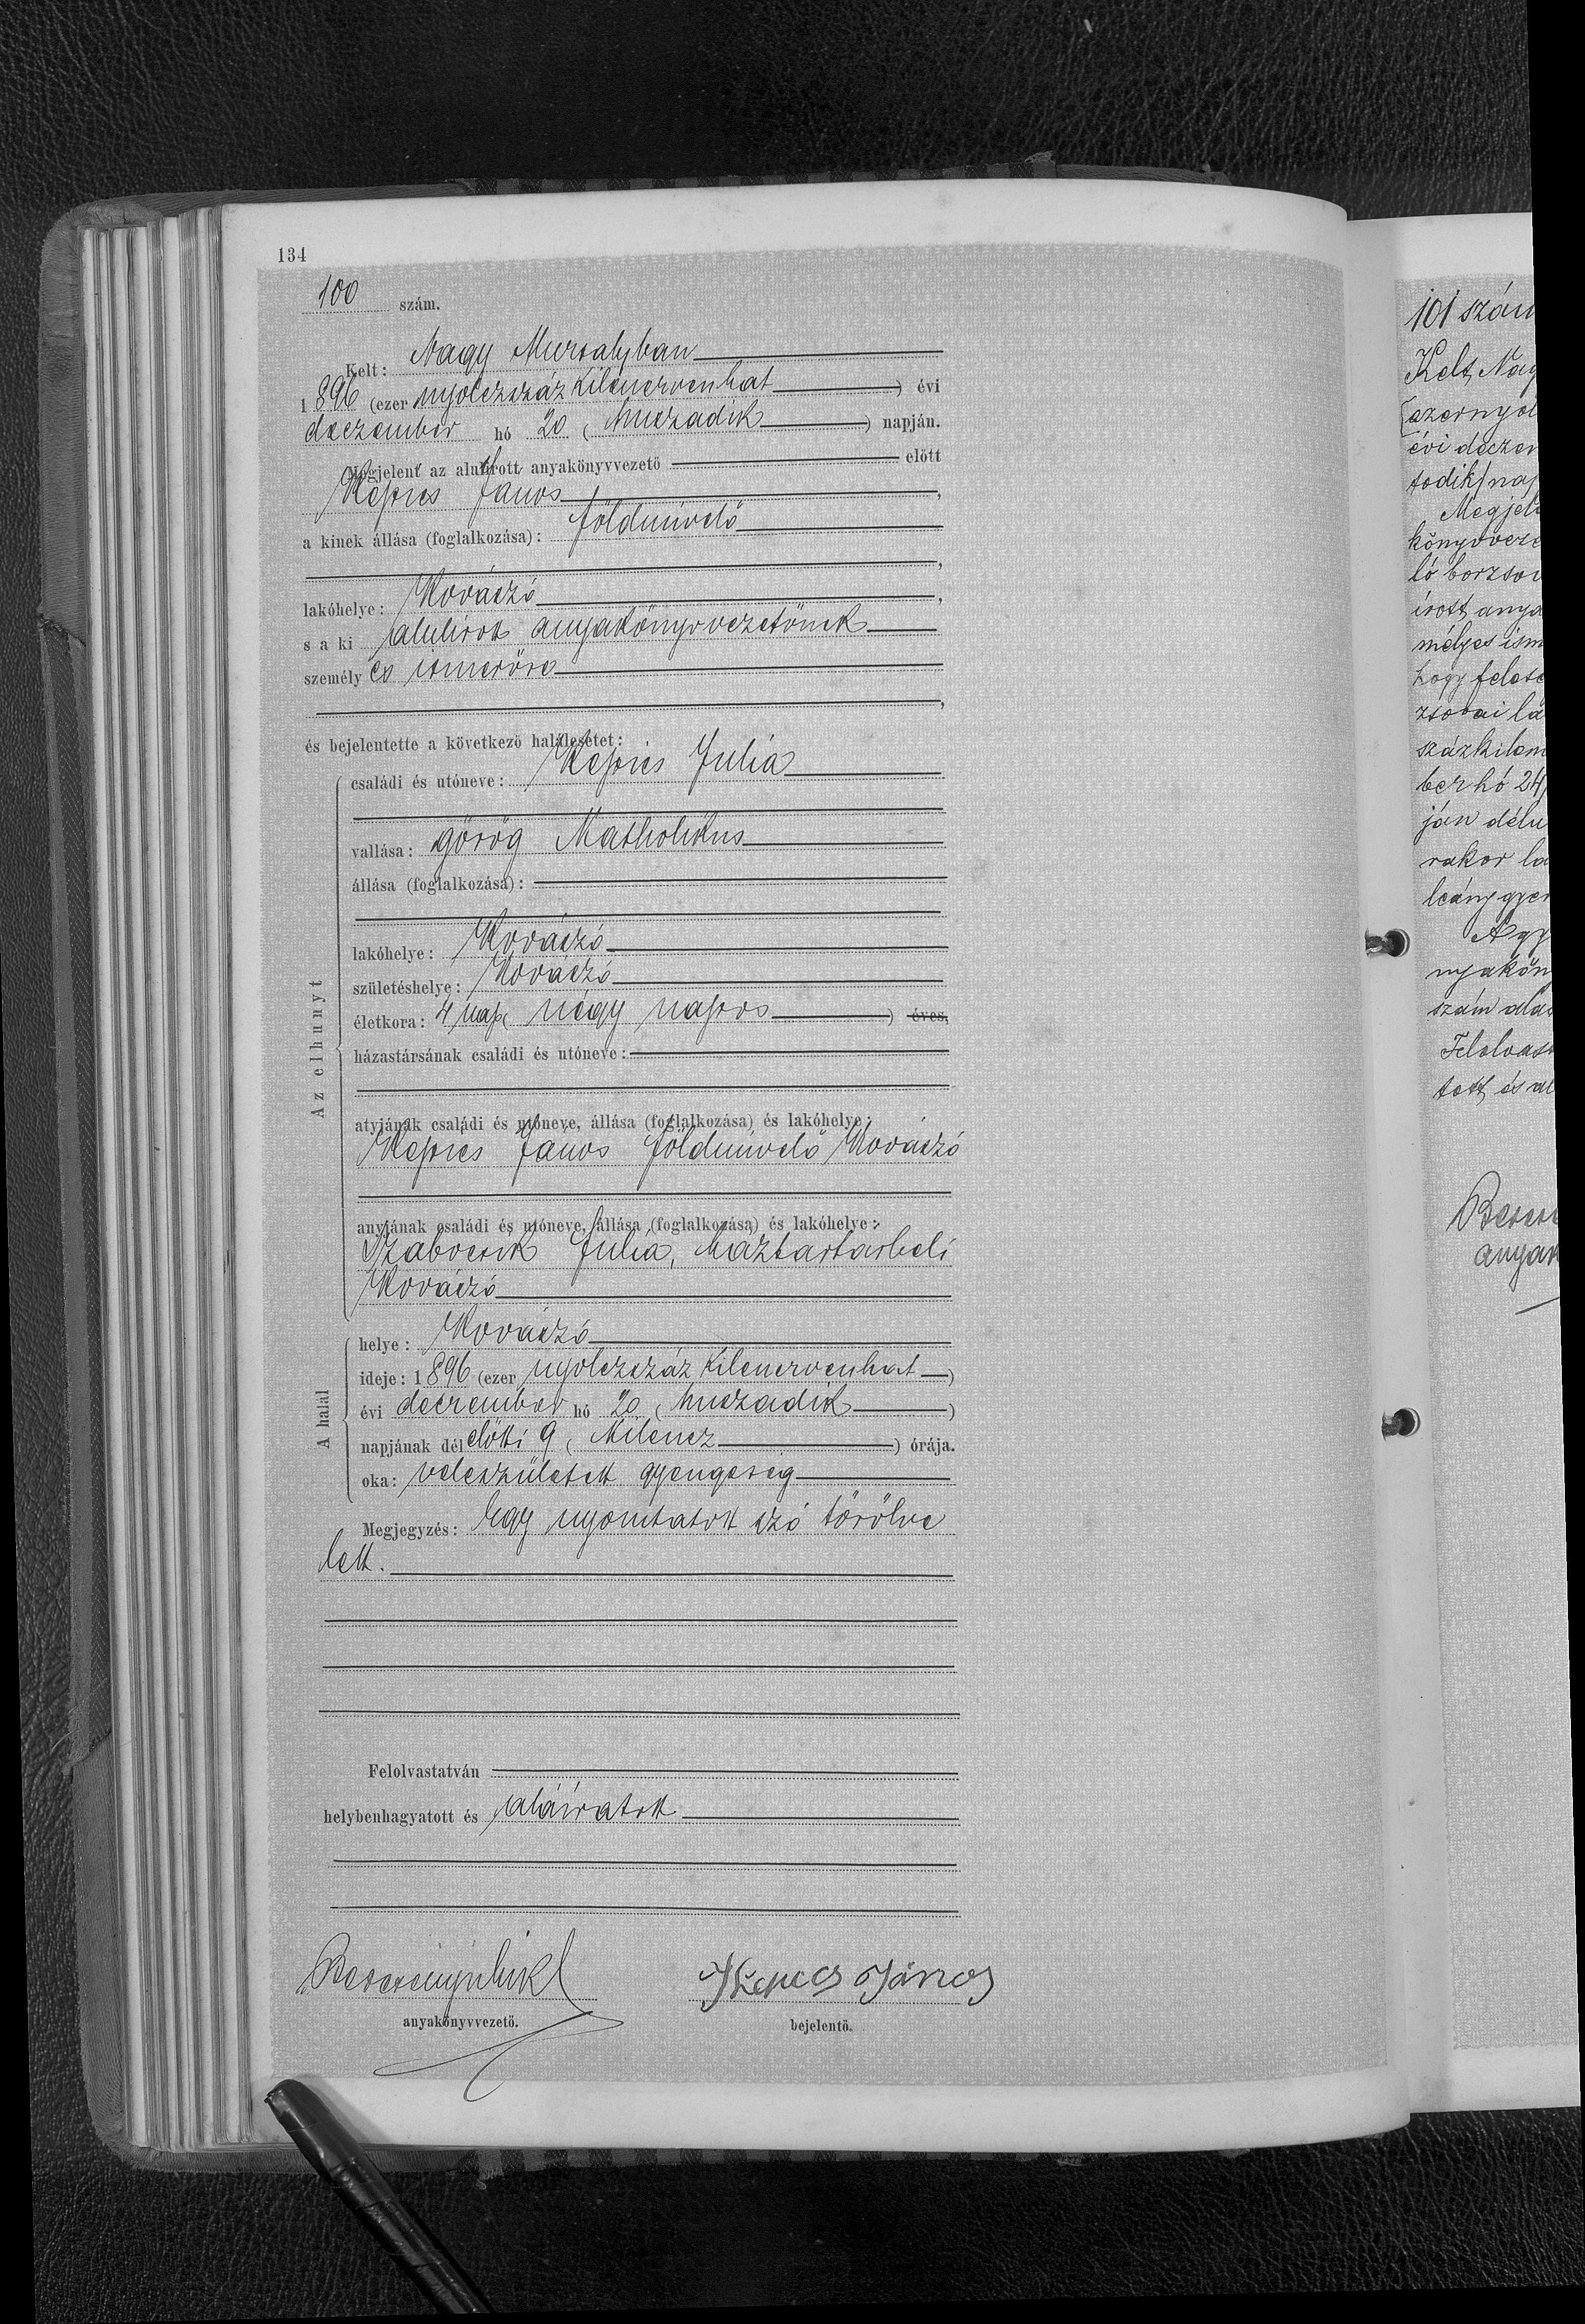 134
100 szám.
Kelt: Nagy Muzsalyban
1896 (ezer nyolczszáz kilenczvenhat) évi
deczember hó 20 (huszadik) napján.
Megjelent az alulirott anyakönyvvezető előtt
Képies János,
a kinek állása (foglalkozása): földmívelő
lakóhelye: Kovászó,
s a ki alulírott anyakönyvvezetőnek
személy es ismerőse
és bejelentette a következő halálesetet:
Az elhunyt
családi és utóneve: Képies Julia
vallása: görög Katholikus
állása (foglalkozása):
lakóhelye: Kovászó
születéshelye: Kovászó
életkora: 4 nap (négy napos) éves,
házastársának családi és utóneve:
atyjának családi és utóneve, állása (foglalkozása) és lakóhelye:
Képies János földmívelő Kovászó
anyjának családi és utóneve, állása (foglalkozása) és lakóhelye:
Szabocsik Julia, háztartásbeli
Kovászó
A halál
helye: Kovászó
ideje: 1896 (ezer nyolczszáz kilenczvenhat)
évi deczember hó 20 (huszadik)
napjának dél előtti 9 (kilencz) órája.
oka: veleszületett gyengeség
Megjegyzés: Egy nyomtatott szó törölve
lett.
Felolvastatván
helybenhagyatott és aláíratott
János
anyakönyvvezető. bejelentő.
101 szám
Kelt, Nag
(ezernyol
évi deczem
todik) nap
Megjele
könyvveze
ló borzsov
írott anya
mélyes ism
hogy felese
zsovai la
százkilen
ber hó 24
ján délu
rakor la
leány gyer
A gy
nyakön
szám ala
Felolvas
tott és al
anyak